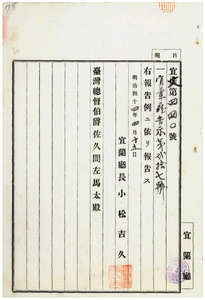 75
報
日
宜文第四四〇號
一宜蘭廳告示第貳拾七號
右報告例ニ依リ報告ス
明治四十四年四月十五日
宜蘭廳長 小松吉久
臺灣總督伯爵佐久間左馬太殿
宜蘭廳